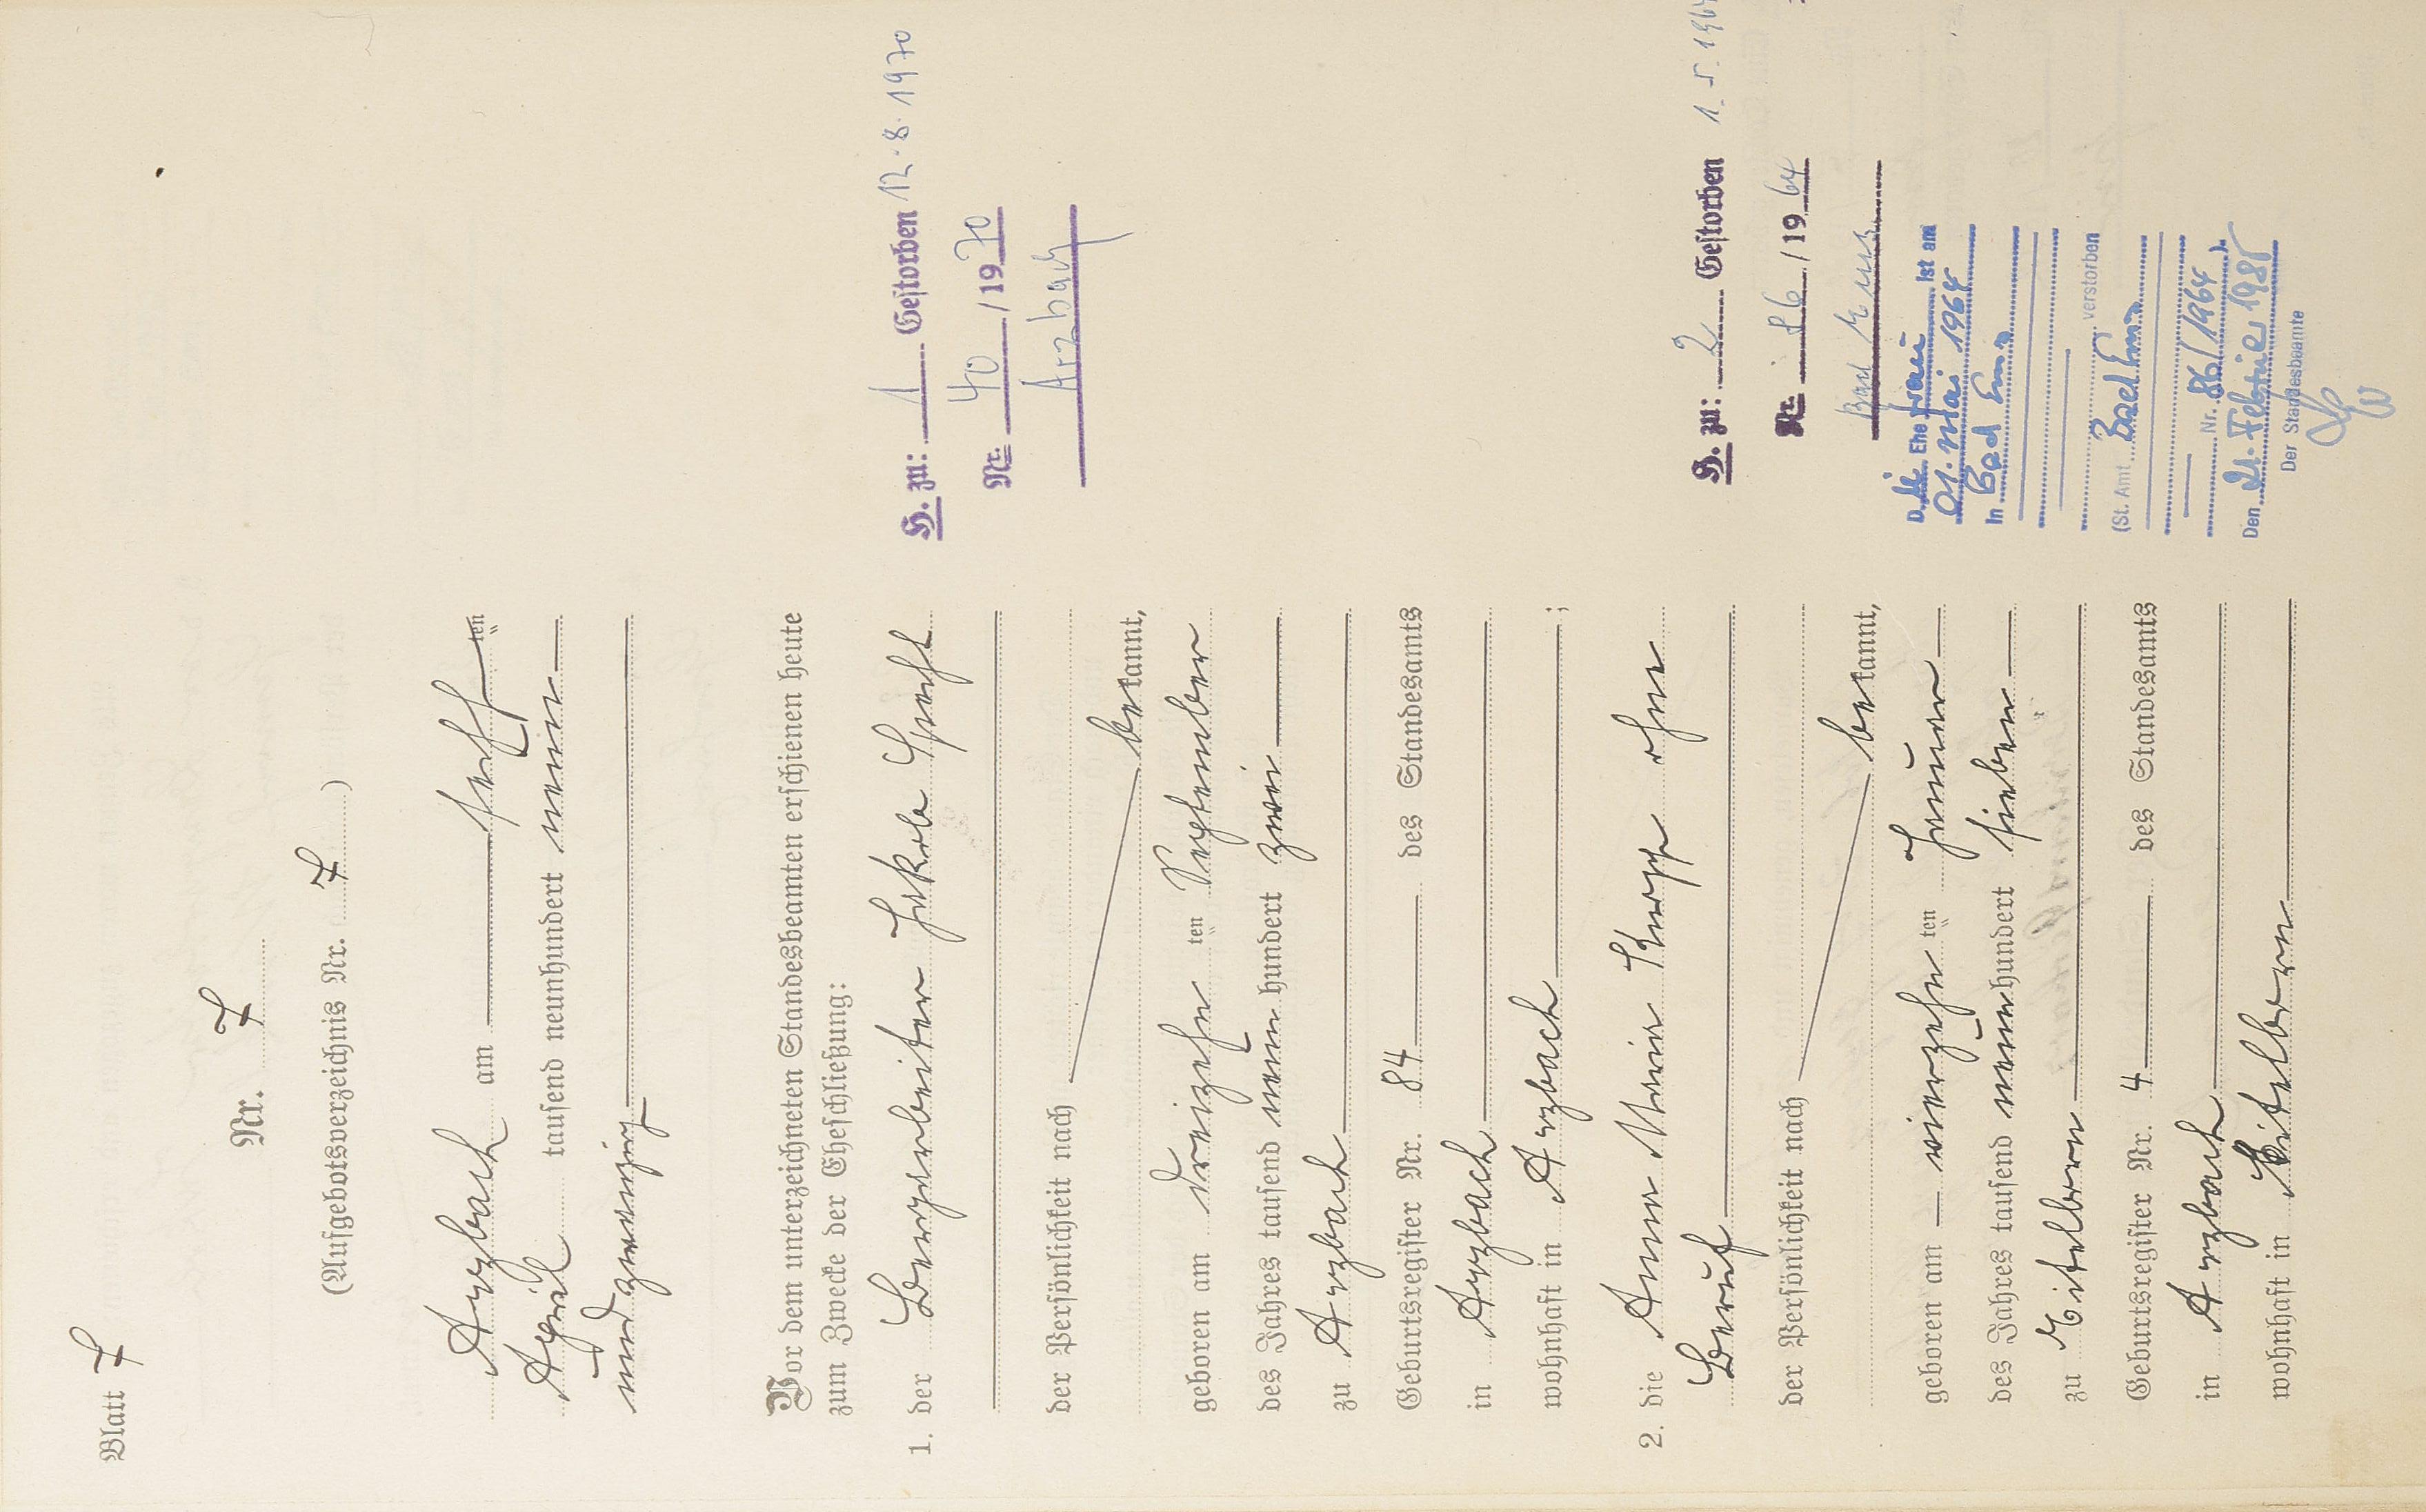 Blatt 7
Nr. 7
(Aufgebotsverzeichnis Nr. 7)
Arzbach am sechsten
April tausend neunhundert neun
und zwanzig
Vor dem unterzeichneten Standesbeamten erschienen heute
zum Zwecke der Eheschließung:
1. der Bergarbeiter Jakob Specht
der Persönlichkeit nach
bekannt,
geboren am dreizehnten September
des Jahres tausend neunhundert zwei
zu Arzbach
Geburtsregister Nr. 84 des Standesamts
in Arzbach
wohnhaft in Arzbach;
2. die Anna Maria ohne
Beruf
der Persönlichkeit nach
bekannt,
geboren am vierzehnten Januar
des Jahres tausend neunhundert sieben
zu Eitelborn
Geburtsregister Nr. 4 des Standesamts
in Arzbach
wohnhaft in Eitelborn
H. zu: 1 Gestorben 12.8.1970
Nr. 40/1970
Arzbach
H. zu: 2 Gestorben 1.5.1964
Nr. 86/1964
Bad Ems
Die Ehefrau ist am
01. Mai 1964
In Bad Ems
verstorben
(St. Amt Bad Ems
Nr. 86/1964).
Den 21. Februar 1985
Der Standesbeamte